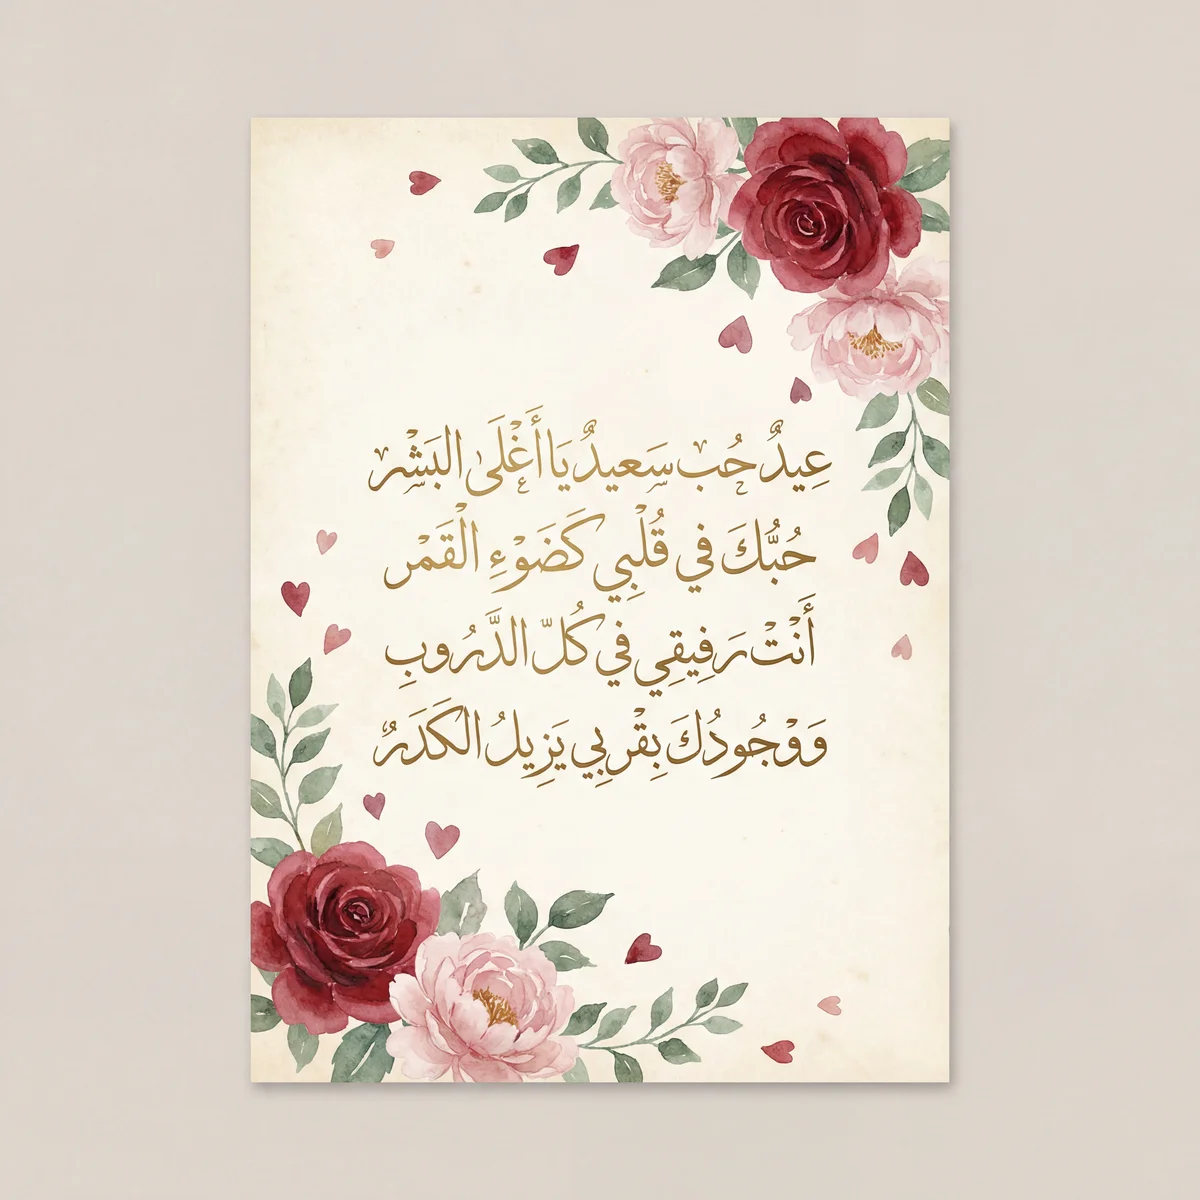 عِيدٌ حُب سَعيدٌ يَا أَغْلَى البَشْر
حُبُّكَ في قُلْبِي كَضَوْءِ الْقَمْر
أَنْتْ رَفِيقِي في كُلّ الدَّرُوبِ
وَوْجُودُكَ بِقْربِي يَزِيلُ الكَدَرٌ